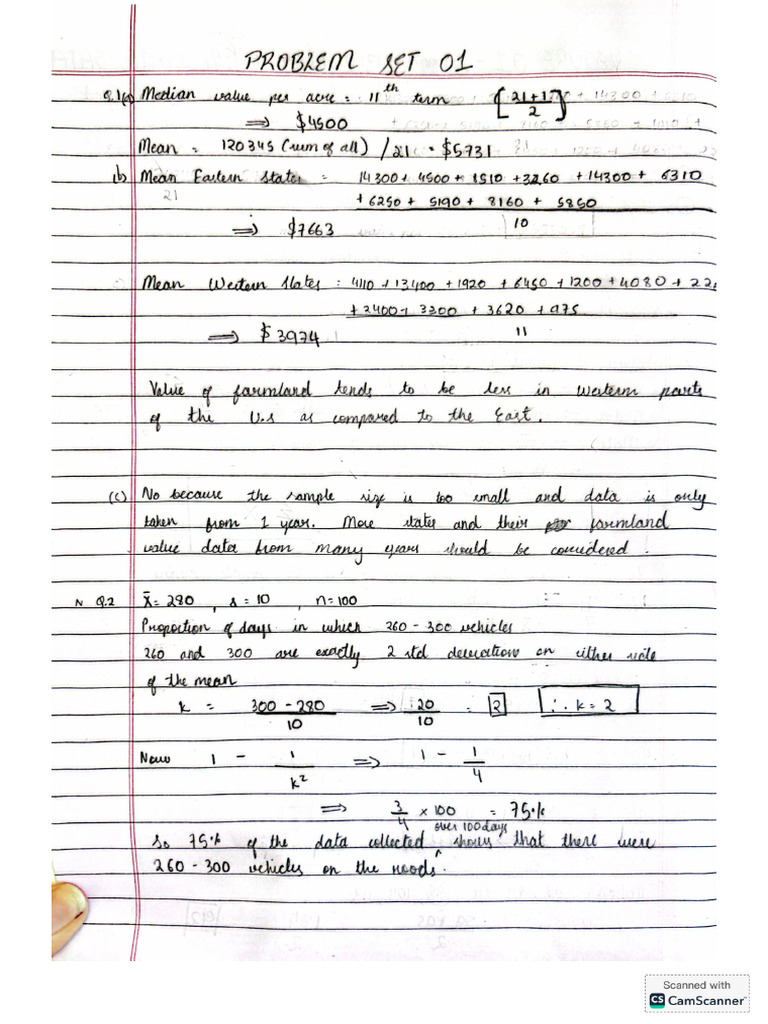 PROBLEM SET 01
Q.1(a) Median value per acre = 11th term [21+1/2]
⇒ $4500
Mean = 120345 (sum of all) /21 = $5731
(b) Mean Eastern States = 14300 + 4500 + 8510 + 3260 + 14300 + 6310
+ 6250 + 5190 + 8160 + 5850
10
⇒ $7663
Mean Western States = 4110 + 13400 + 1920 + 6450 + 1200 + 4080 + 22
+ 2400 + 3300 + 3620 + 975
11
⇒ $3974
Value of farmland tends to be less in western parts
of the U.S as compared to the East.
(c) No because the sample size is too small and data is only
taken from 1 year. More states and their farmland
value data from many years should be considered.
N Q.2 x̄ = 280 , s = 10 , n = 100
Proportion of days in which 260 - 300 vehicles
260 and 300 are exactly 2 std deviations on either side
of the mean
k = 300 - 280 / 10 ⇒ 20 / 10 = 2 ∴ k = 2
Now 1 - 1/k² ⇒ 1 - 1/4
⇒ 3/4 x 100 = 75%
over 100 days
So 75% of the data collected ^ shows that there were
260 - 300 vehicles on the roads.
Scanned with
CS CamScanner